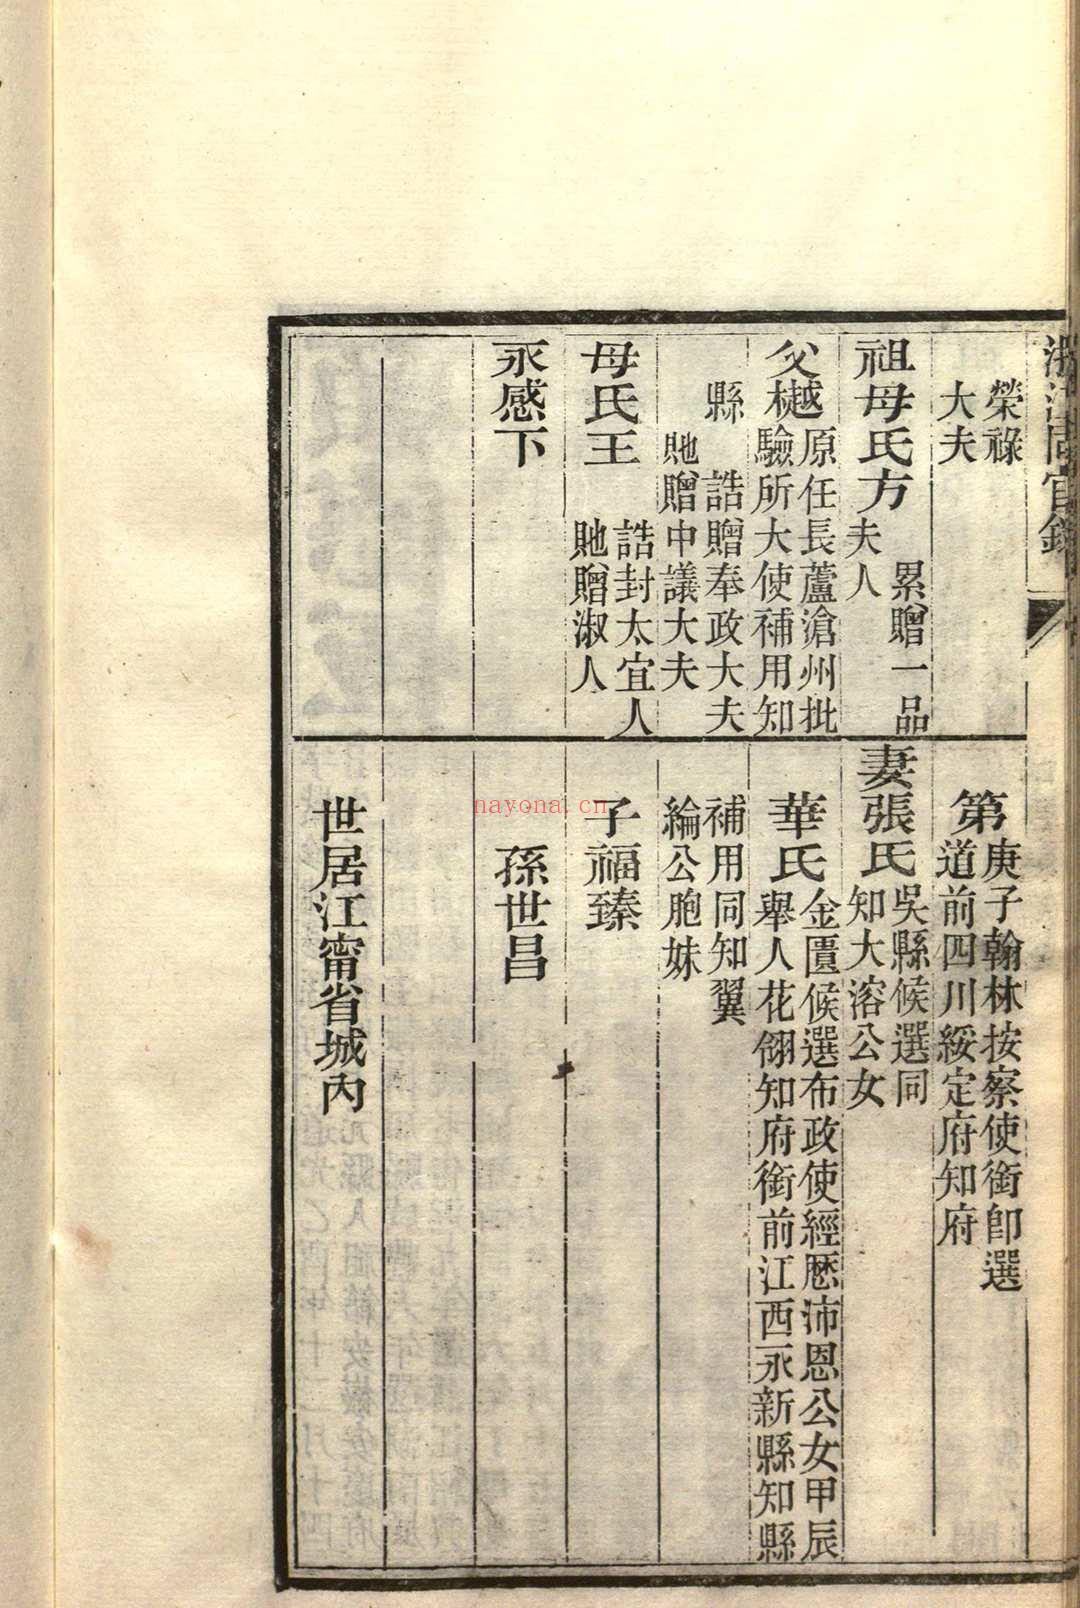 浙江同官錄
榮祿
大夫
祖母氏方
累贈一品
夫人
父樾
原任長蘆滄州批
驗所大使補用知
縣 誥贈奉政大夫
貤贈中議大夫
母氏王
誥封太宜人
貤贈淑人
永感下
第
庚子翰林按察使銜卽選
道前四川綏定府知府
妻張氏
吳縣候選同
知大溶公女
華氏
金匱候選布政使經歷沛恩公女甲辰
舉人花翎知府銜前江西永新縣知縣
補用同知翼
綸公胞妹
子福臻
孫世昌
世居江甯省城內
nayona.cn